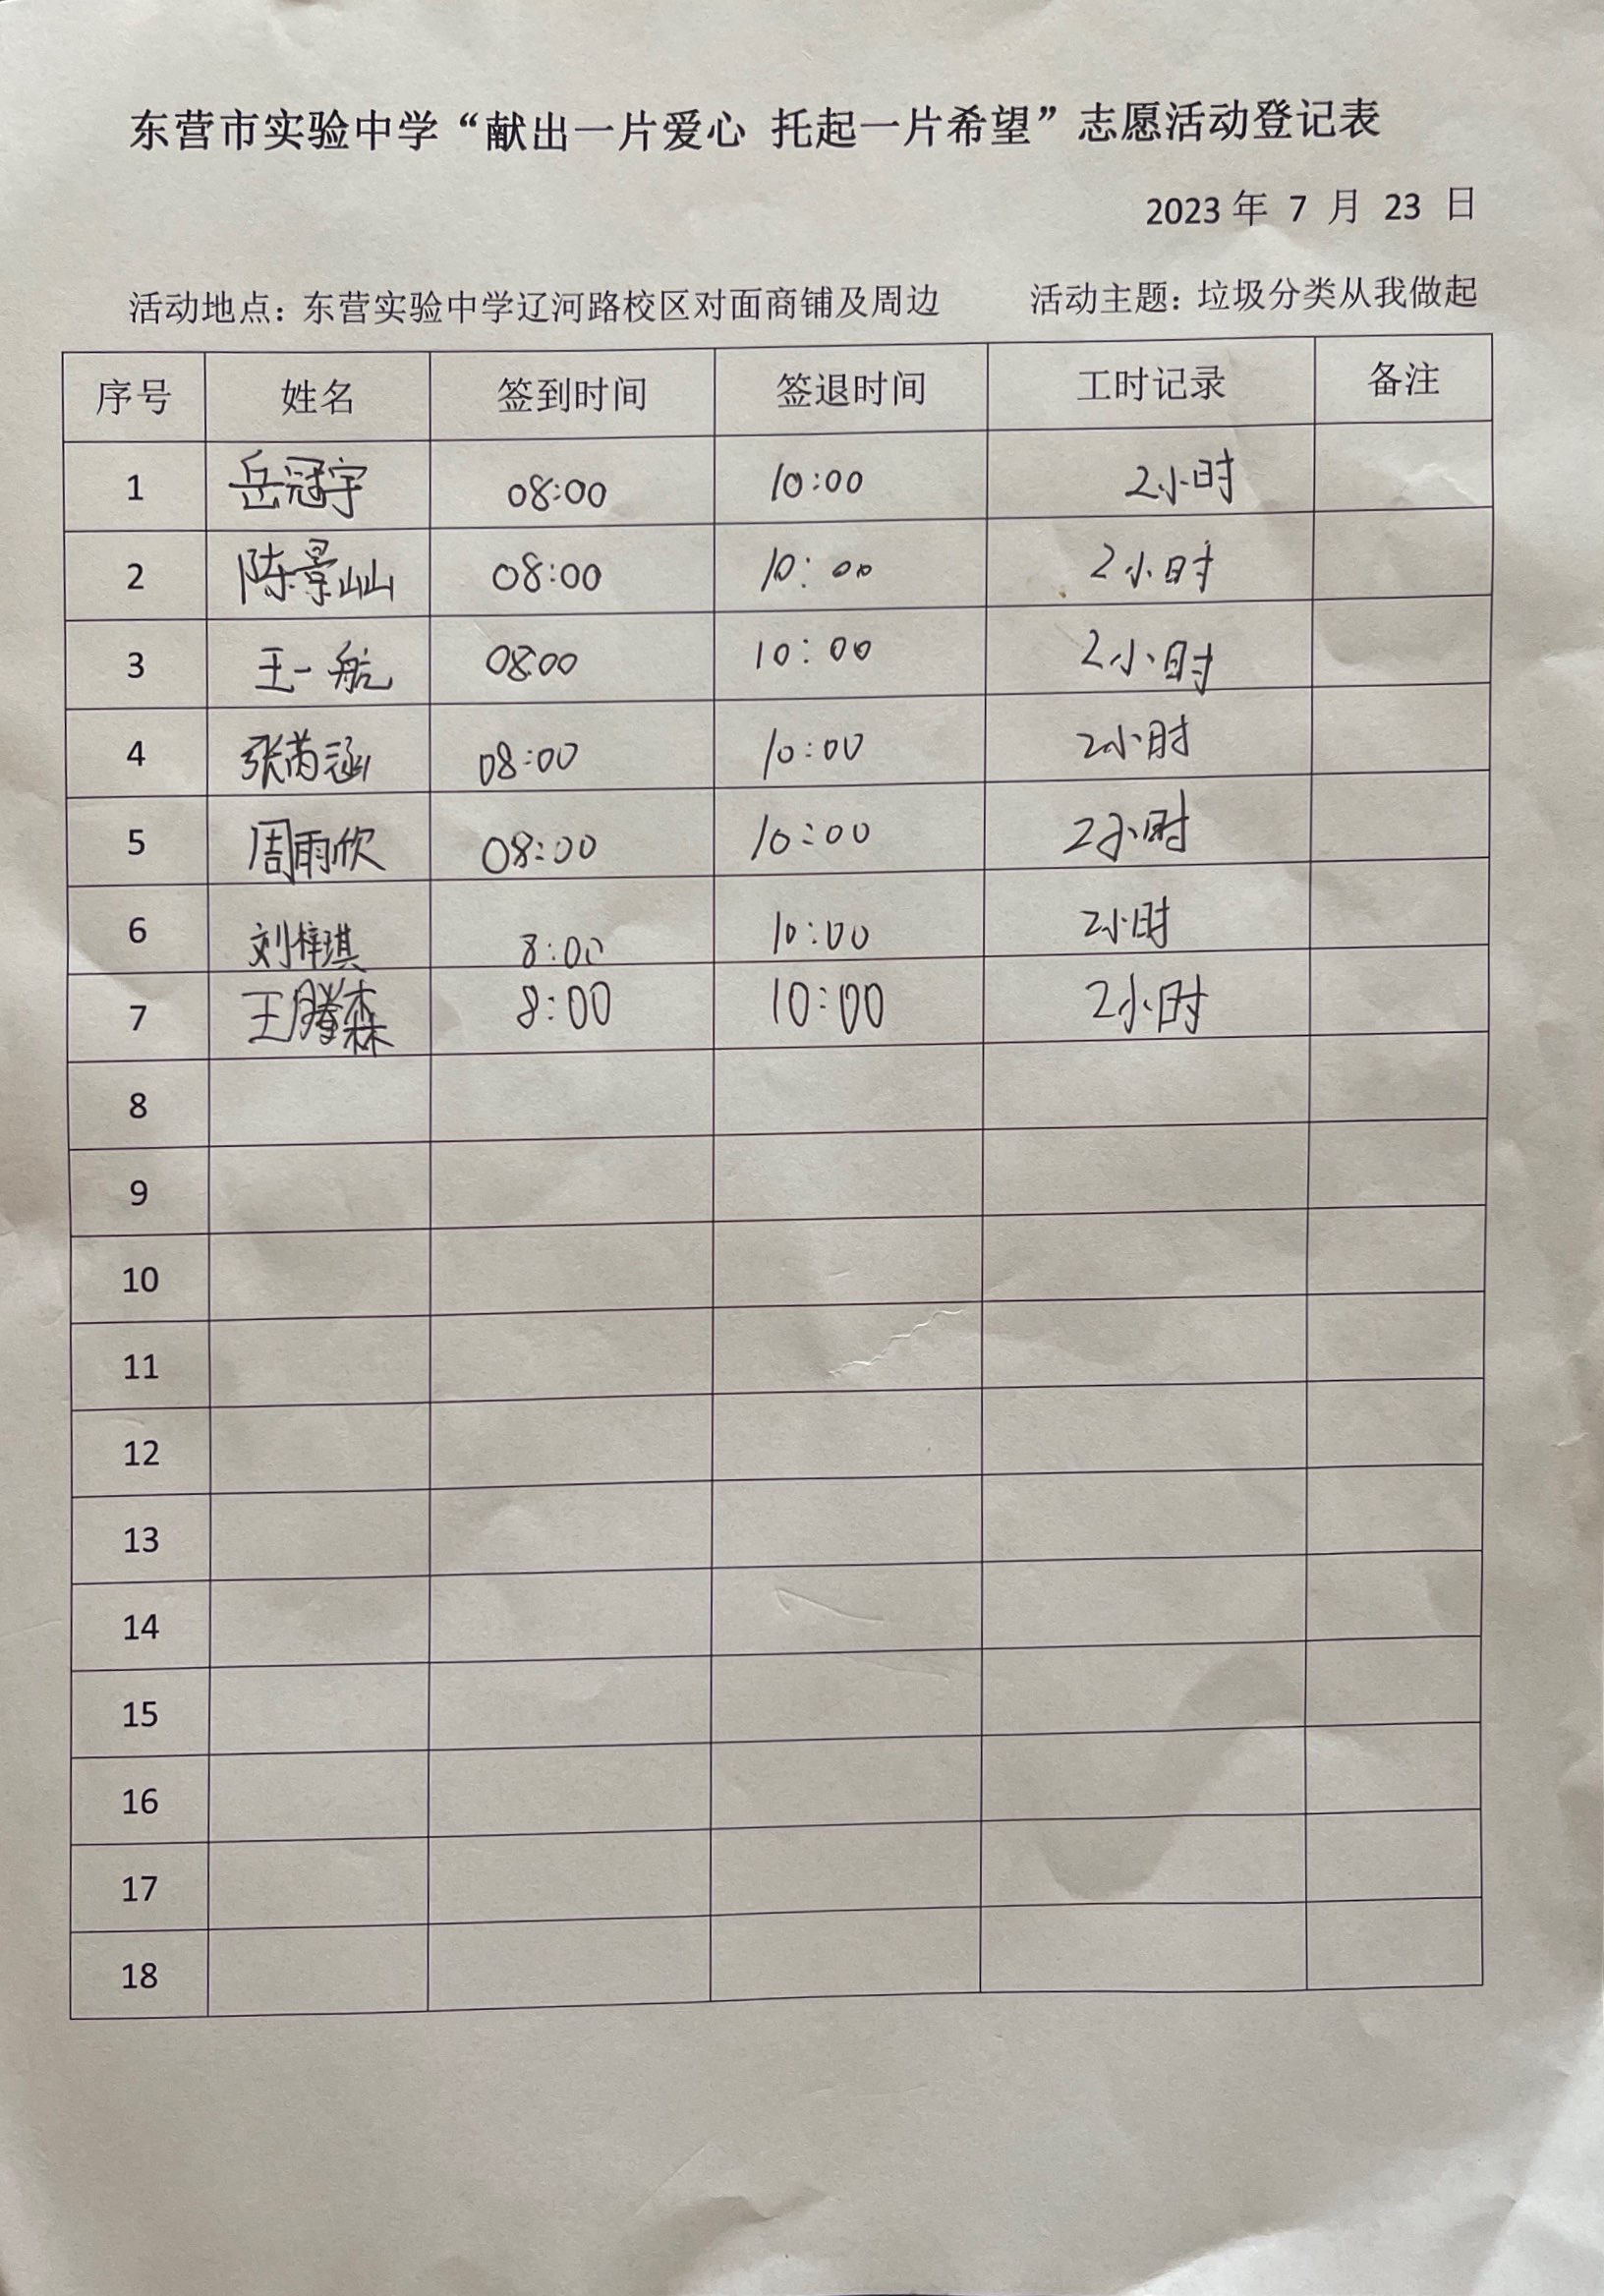 东营市实验中学“献出一片爱心 托起一片希望”志愿活动登记表
2023 年 7 月 23 日
活动地点：东营实验中学辽河路校区对面商铺及周边 活动主题：垃圾分类从我做起
序号 姓名 签到时间 签退时间 工时记录 备注
1 岳冠宇 08:00 10:00 2小时
2 陈景屾 08:00 10:00 2小时
3 王一航 08:00 10:00 2小时
4 张芮涵 08:00 10:00 2小时
5 周雨欣 08:00 10:00 2小时
6 刘梓琪 8:00 10:00 2小时
7 王腾森 8:00 10:00 2小时
8
9
10
11
12
13
14
15
16
17
18